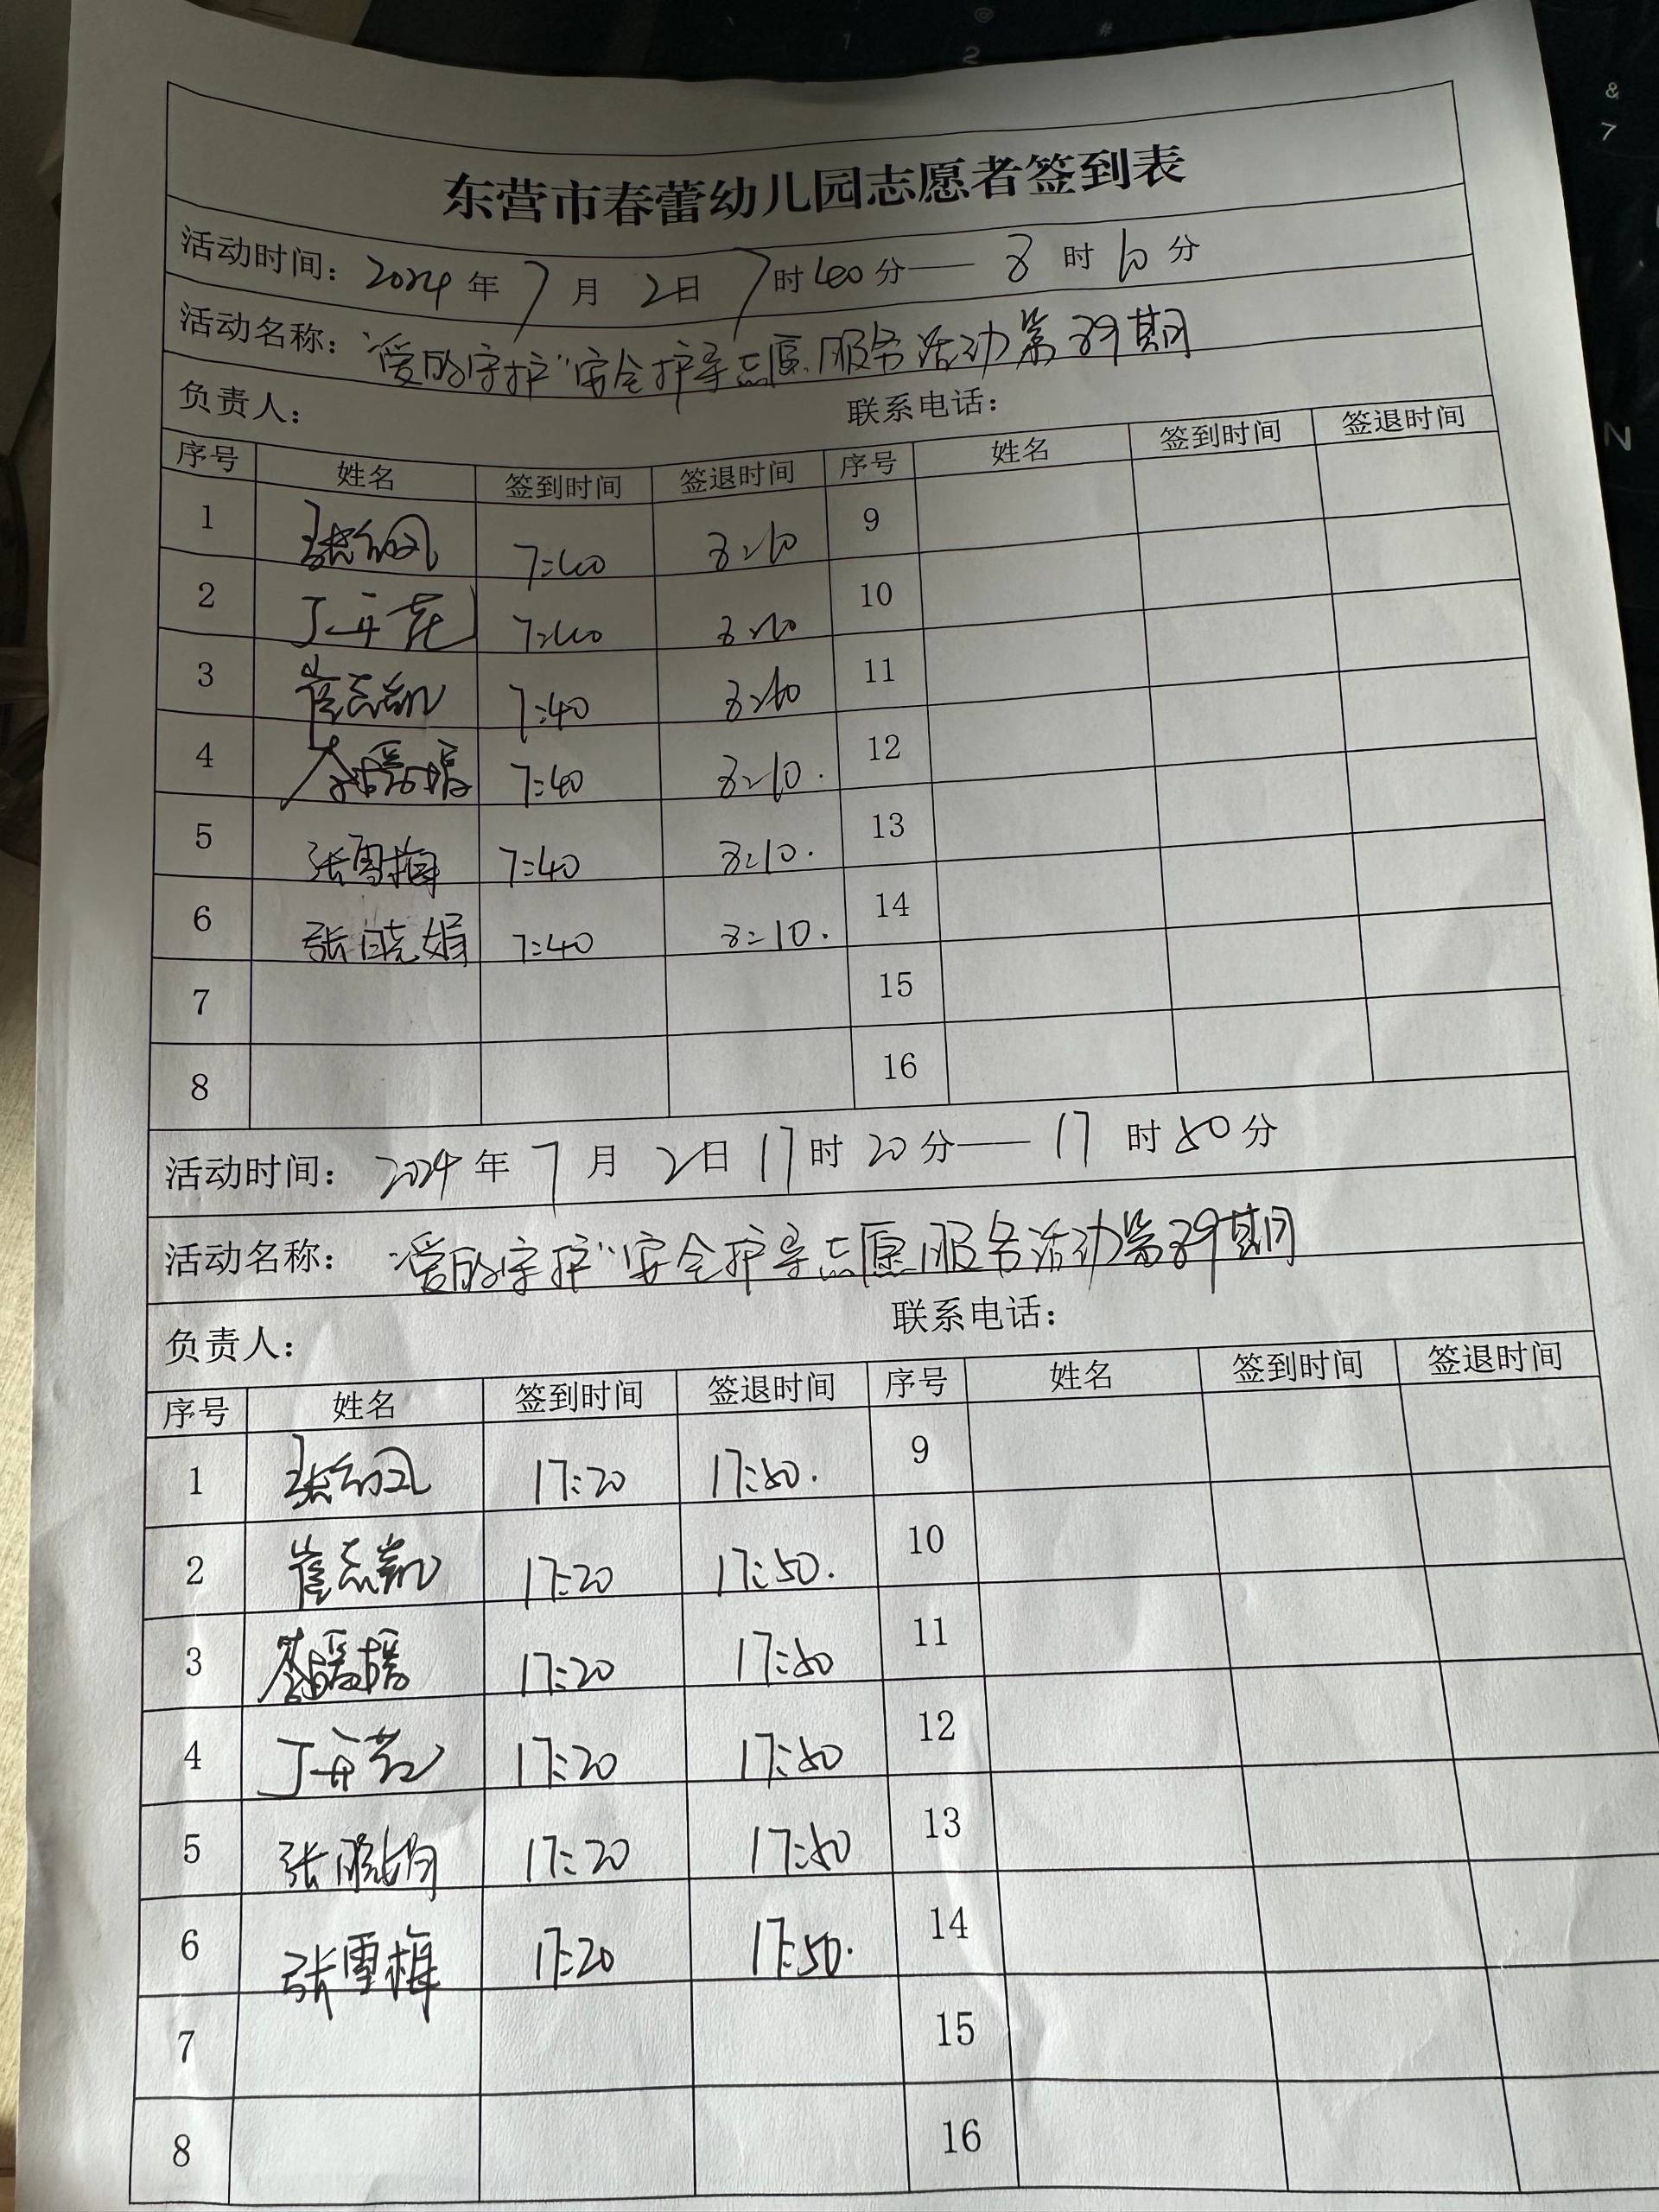 东营市春蕾幼儿园志愿者签到表
活动时间：2024年7月2日7时40分——8时10分
活动名称："爱的守护"安全护导志愿服务活动第39期
负责人： 联系电话：
序号 姓名 签到时间 签退时间 序号 姓名 签到时间 签退时间
1 7:40 8:10 9
2 7:40 8:10 10
3 崔志凯 7:40 8:10 11
4 7:40 8:10. 12
5 张雪梅 7:40 8:10. 13
6 张晓娟 7:40 8:10. 14
7 15
8 16
活动时间：2024年7月2日17时20分——17时50分
活动名称："爱的守护"安全护导志愿服务活动第39期
负责人： 联系电话：
序号 姓名 签到时间 签退时间 序号 姓名 签到时间 签退时间
1 17:20 17:50. 9
2 崔志凯 17:20 17:50. 10
3 17:20 17:50 11
4 17:20 17:50 12
5 张晓娟 17:20 17:50 13
6 张雪梅 17:20 17:50. 14
7 15
8 16